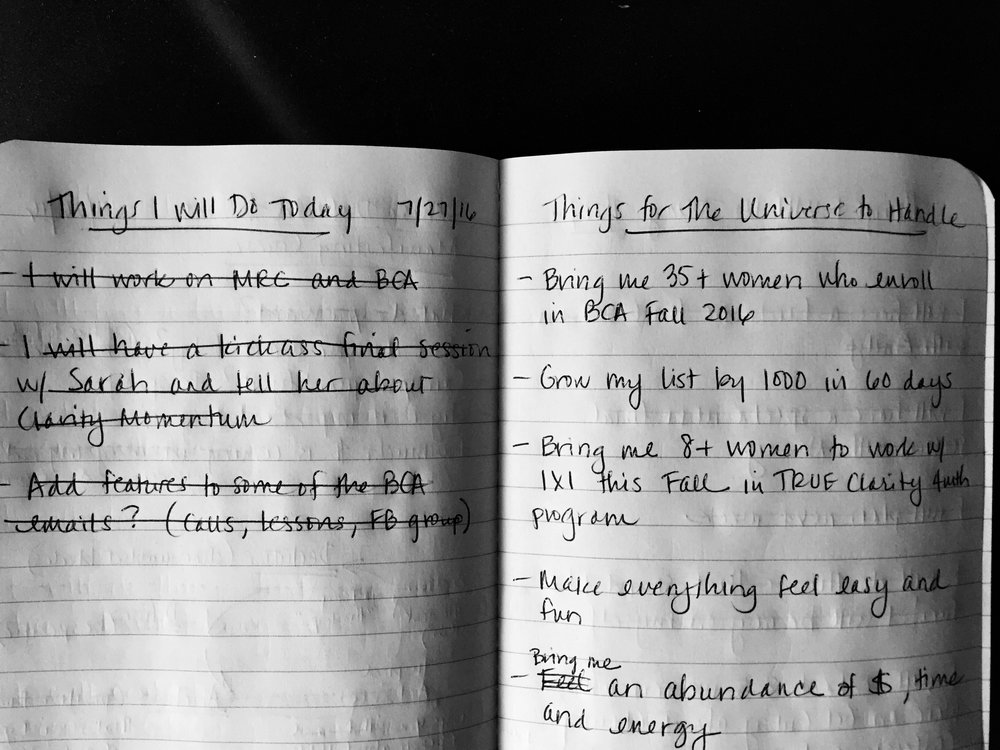 Things I will Do Today 7/27/16
- I will work on MRC and BCA
- I will have a kickass final session
w/ Sarah and tell her about
Clarity Momentum
- Add features to some of the BCA
emails? (calls, lessons, FB group)
Things for The Universe to Handle
- Bring me 35+ women who enroll
in BCA Fall 2016
- Grow my list by 1000 in 60 days
- Bring me 8+ women to work w/
1X1 this Fall in TRUE Clarity 4mth
program
- Make everything feel easy and
fun
Bring me
- Feel an abundance of $, time
and energy